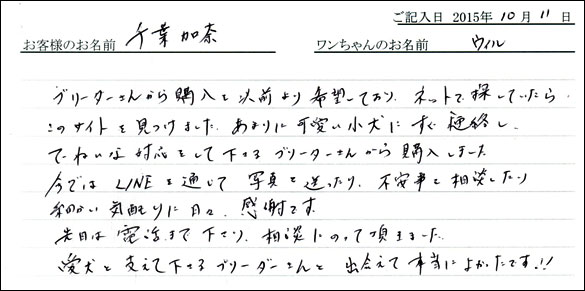 ご記入日 2015年 10月 11日
お客様のお名前 千葉加奈 ワンちゃんのお名前 ウィル
ブリーダーさんから購入を以前より希望しており、ネットで探していたら
このサイトを見つけました。あまりに可愛い小犬にすぐ連絡し、
てーねいな対応をして下さるブリーダーさんから購入しました。
今ではLINEを通じて写真を送ったり、不安事を相談したり
細かい気配りに日々、感謝です。
先日は電話まで下さり、相談にのって頂きました。
愛犬を支えて下さるブリーダーさんと出会えて本当によかったです!!